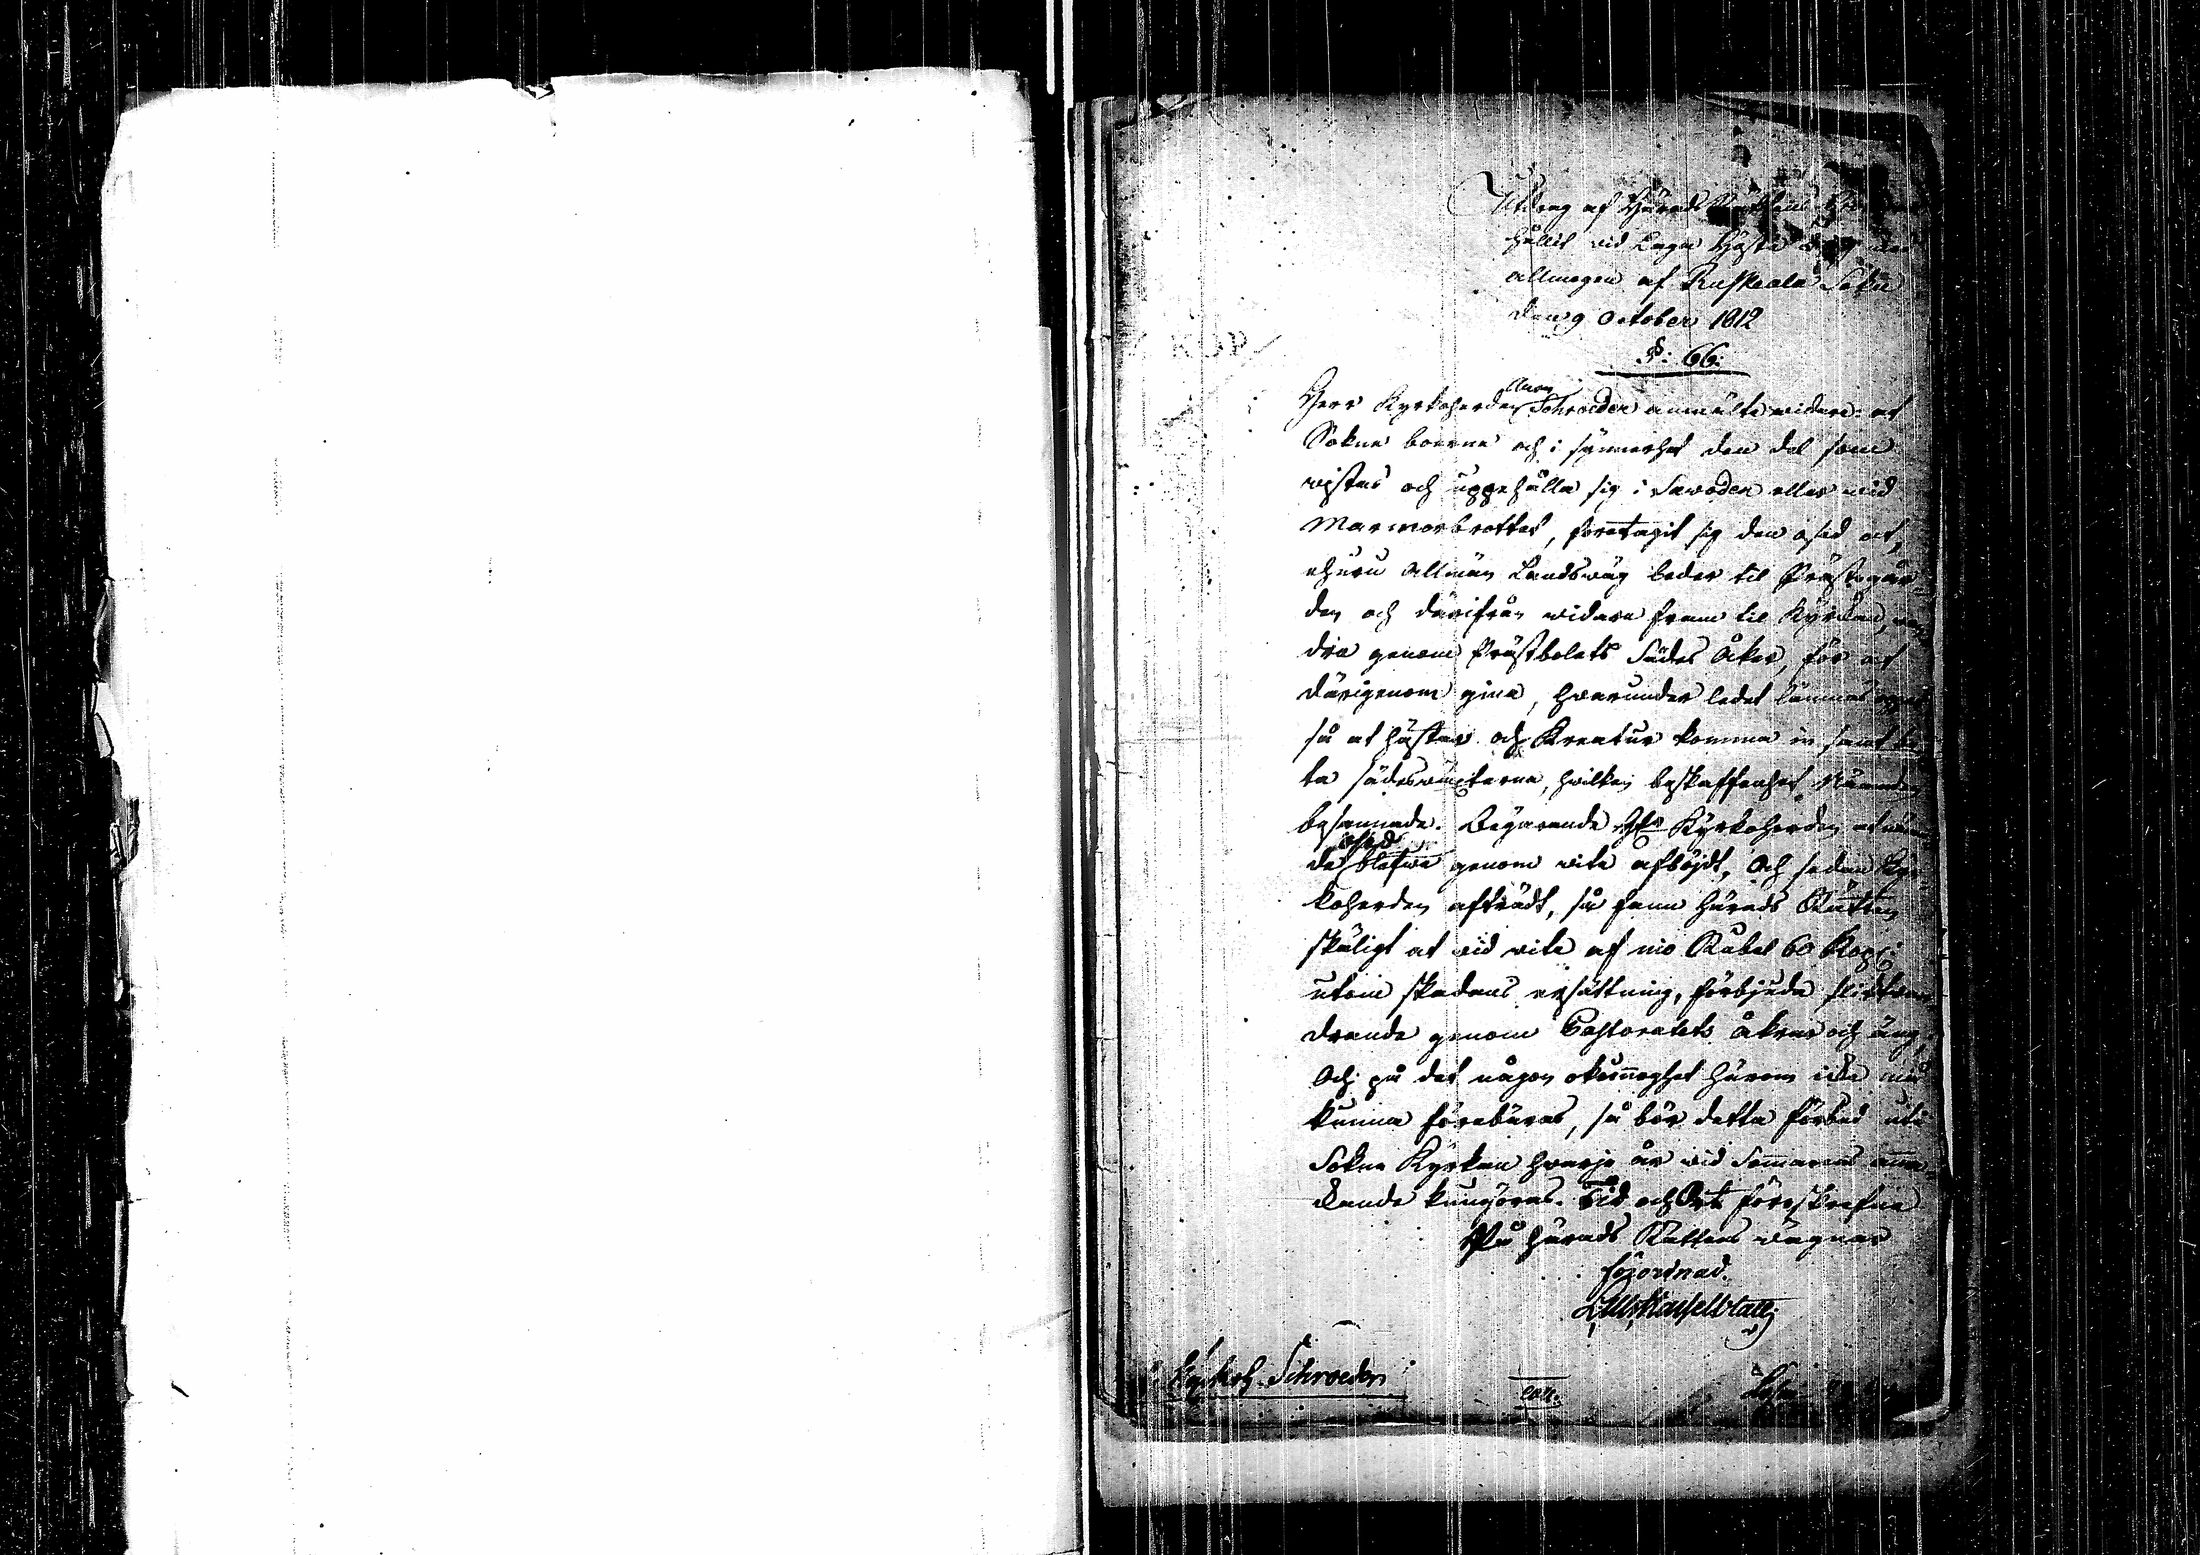 Utdrag af Härads Rättens
hållit vid Laga Höste Ting med
allmogen af Ruskeala Sokn
den 9 October 1812
§: 66.
Herr Kyrkoherden Aron Schroeder anmälte vidare: at
Sokne boerne och i synnerhet den del som
vistas och uppehålla sig i Sawoden eller wid
Marmorbrottet, foretagit sig den osed at,
ehuru Allmän Landswäg leder til Prästegår-
den och därifrån widare fram til Kyrkan, wan-
dra genom Prästbolets Sädes Åker, för at
därigenom gina, hwarunder ledet lämnas öppet
så at hästar och Kreatur komma in samt be-
ta sädeswäxterna, hvilken beskaffenhet Nämnden
besannade. Begärande Hr Kyrkoherden at
de osed blefwe genom vite afböjdt, Och sedan Kyr-
koherden afträdt, så fann Härads Rätten
skäligt at vid vite af nio Rubel 60 Kop:
utom skadans ersättning, förbjuda slikt wan-
drande genom Pastoratets åkrar och äng,
Och på det någon okunnoghet härom icke må
kunna förebäras, så bör detta förbud uti
Sokne Kyrkan hwarje år wid Sommarens anna-
lkande kungöras. Tid och Ort förrskrefne
På Härads Rättens vägnar
Hasselblatt
Kyrkoh. Schroeder